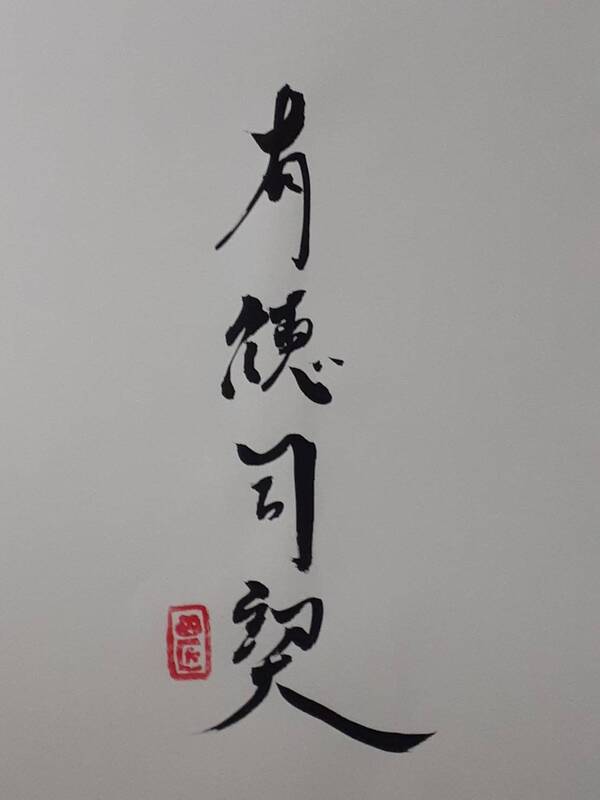 有德司契